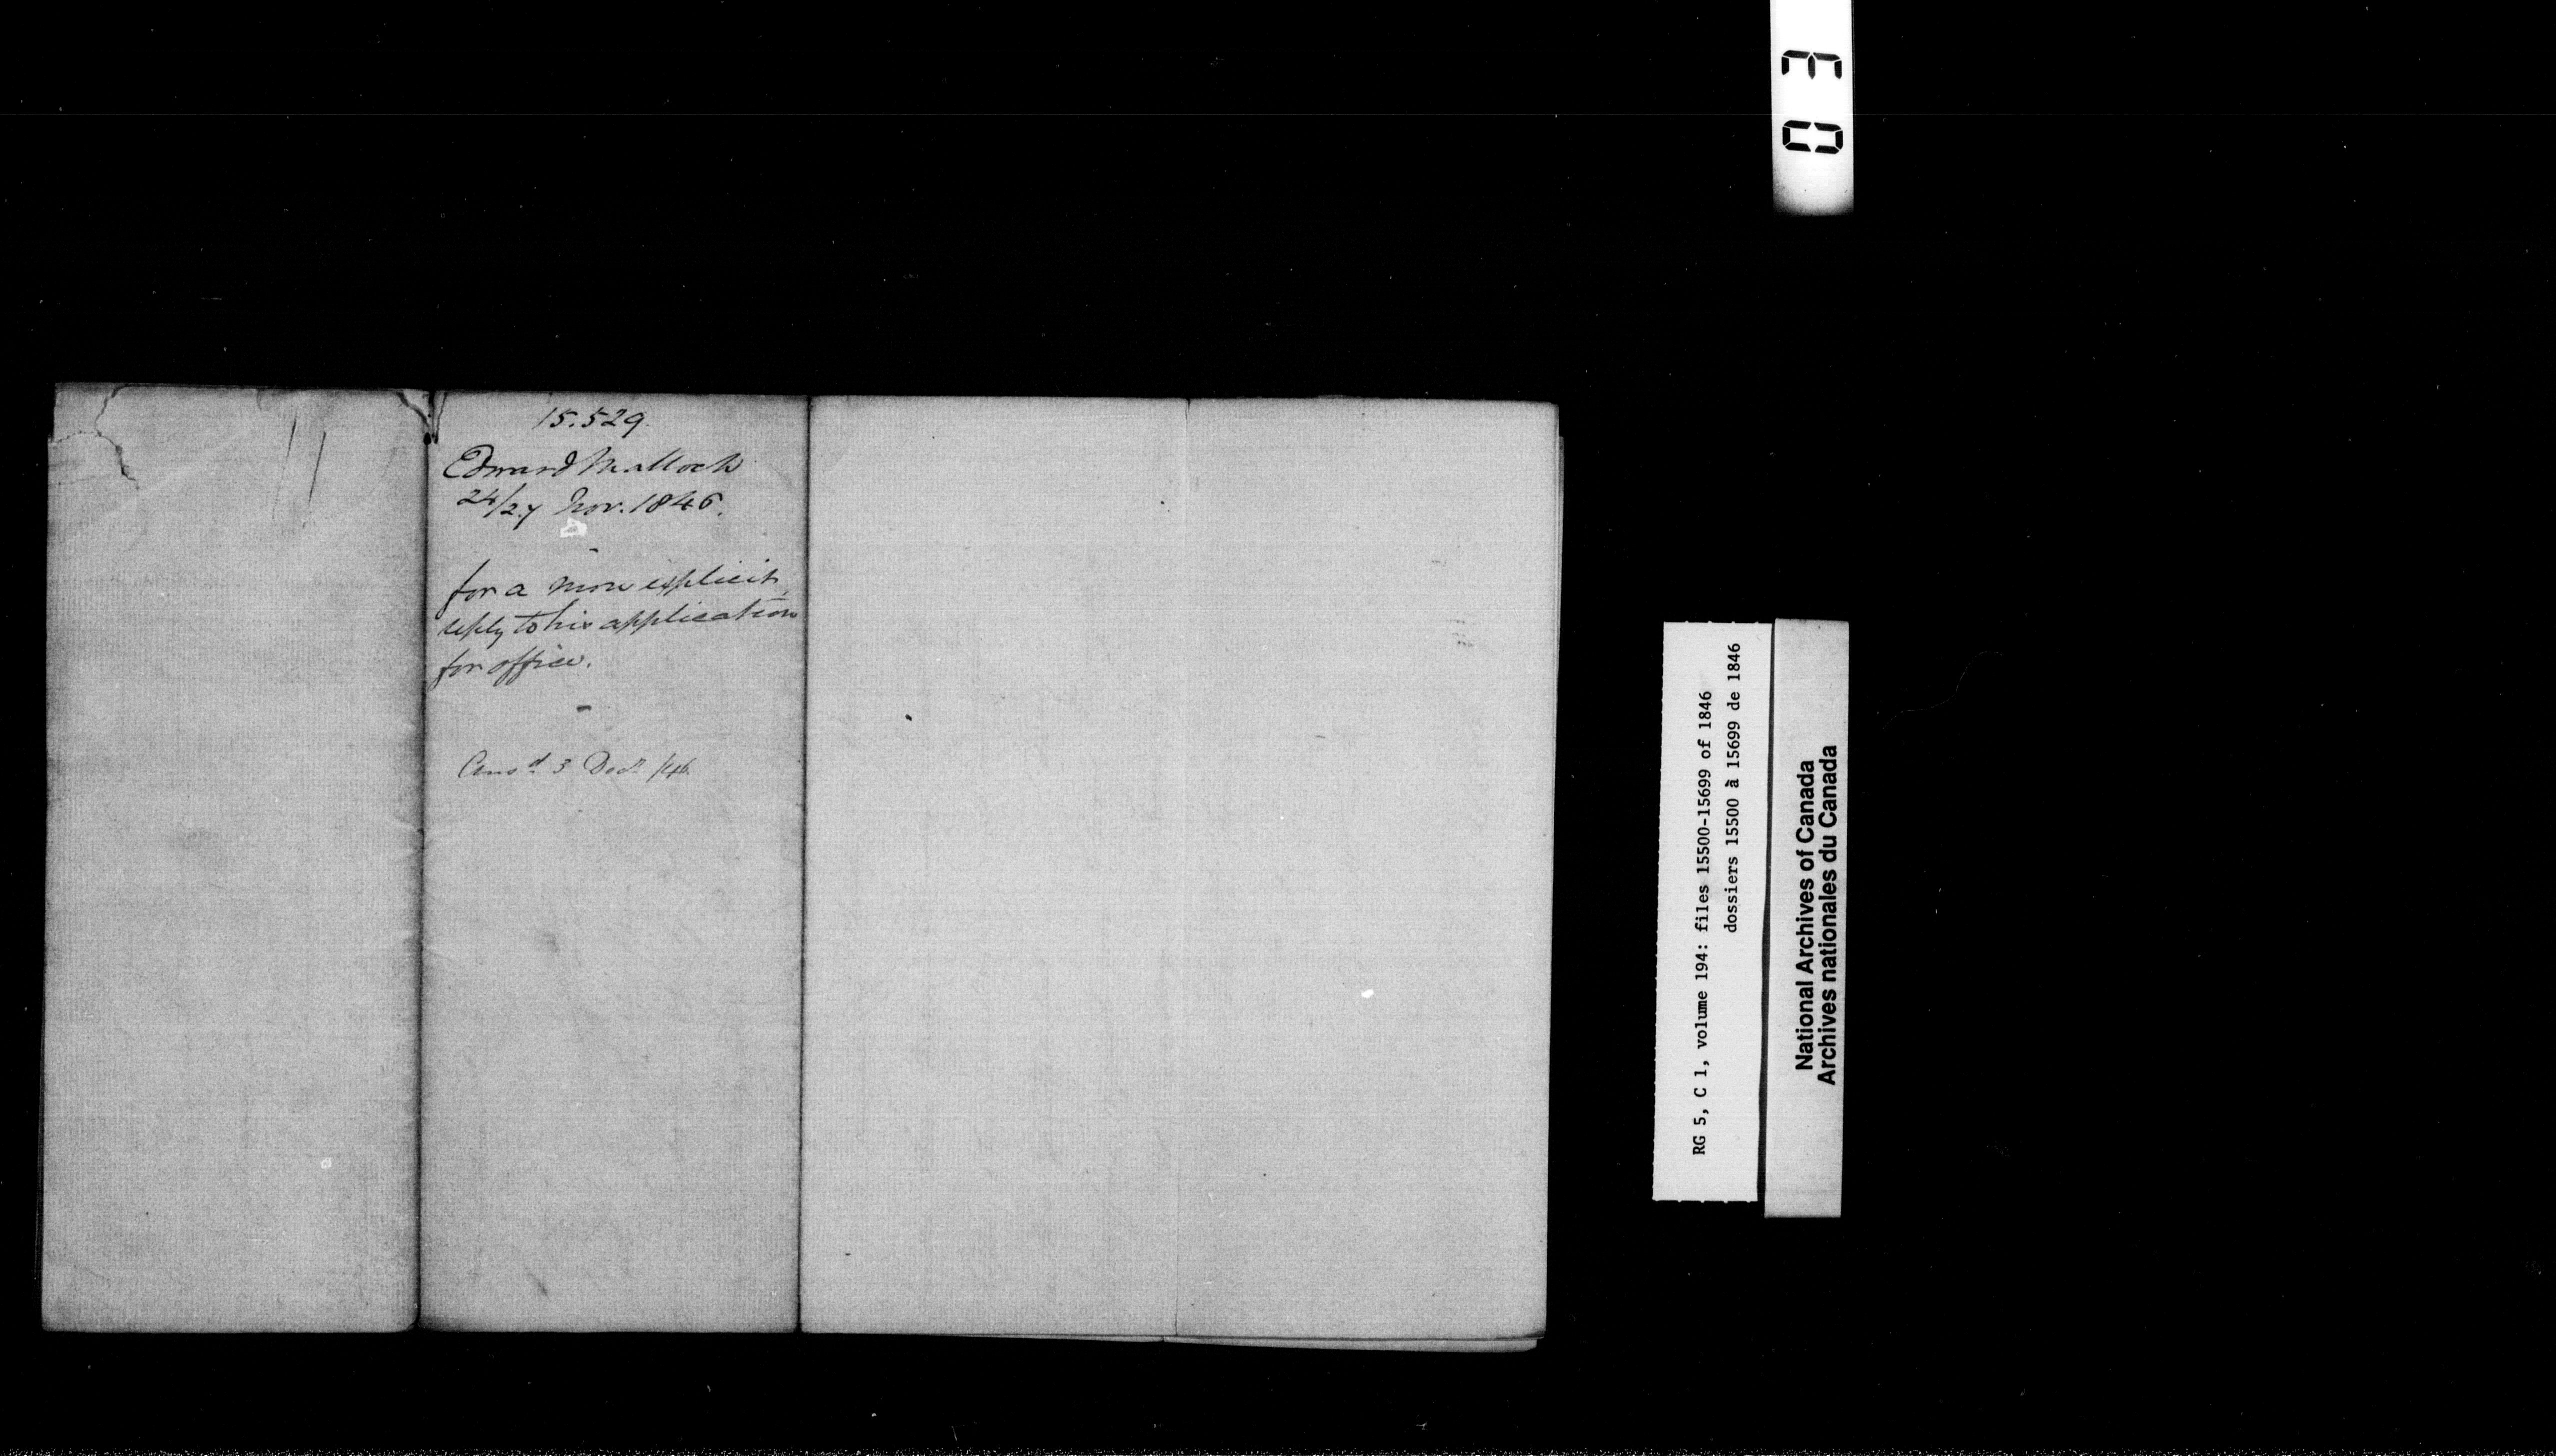 03
15.529.
Edward Malloch
24/27 Nov. 1846.
for a more explicit
reply to his application
for office.
Ansd. 3 Decr /46.
RG 5, C 1, volume 194: files 15500-15699 of 1846
dossiers 15500 à 15699 de 1846
National Archives of Canada
Archives nationales du Canada